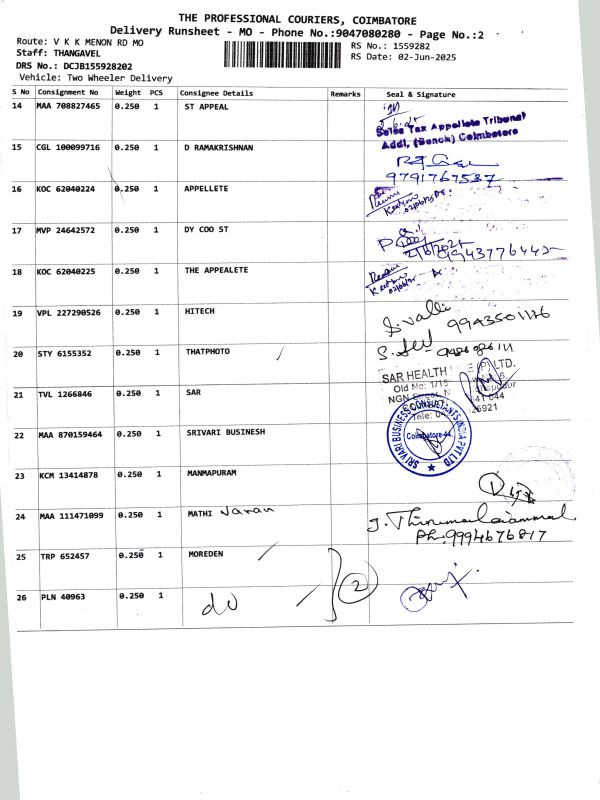 THE PROFESSIONAL COURIERS, COIMBATORE
Delivery Runsheet - MO - Phone No.:9047080280 - Page No.:2
Route: V K K MENON RD MO
RS No.: 1559282
Staff: THANGAVEL
RS Date: 02-Jun-2025
DRS No.: DCJB155928202
Vehicle: Two Wheeler Delivery
S No Consignment No Weight PCS Consignee Details Remarks Seal & Signature
14 MAA 708827465 0.250 1 ST APPEAL
Sales Tax Appellate Tribunal
Addl, (Bench) Coimbatore
15 CGL 100099716 0.250 1 D RAMAKRISHNAN
9791767537
16 KOC 62040224 0.250 1 APPELLETE
17 MVP 24642572 0.250 1 DY COO ST
9943776445
18 KOC 62040225 0.250 1 THE APPEALETE
19 VPL 227290526 0.250 1 HITECH
S. Valli
9943501176
20 STY 6155352 0.250 1 THATPHOTO
SAR HEALTH LTD.
Old No: 1/18
NGN
641 044
Tele: 26921
21 TVL 1266846 0.250 1 SAR
22 MAA 870159464 0.250 1 SRIVARI BUSINESH
SRI VARI BUSINESS CONSULTANTS INDIA PVT LTD
Coimbatore-44
23 KCM 13414878 0.250 1 MANMAPURAM
24 MAA 111471099 0.250 1 MATHI Navan
J. Thirumalaiammal
Ph: 9994676817
25 TRP 652457 0.250 1 MOREDEN
2
26 PLN 40963 0.250 1 do